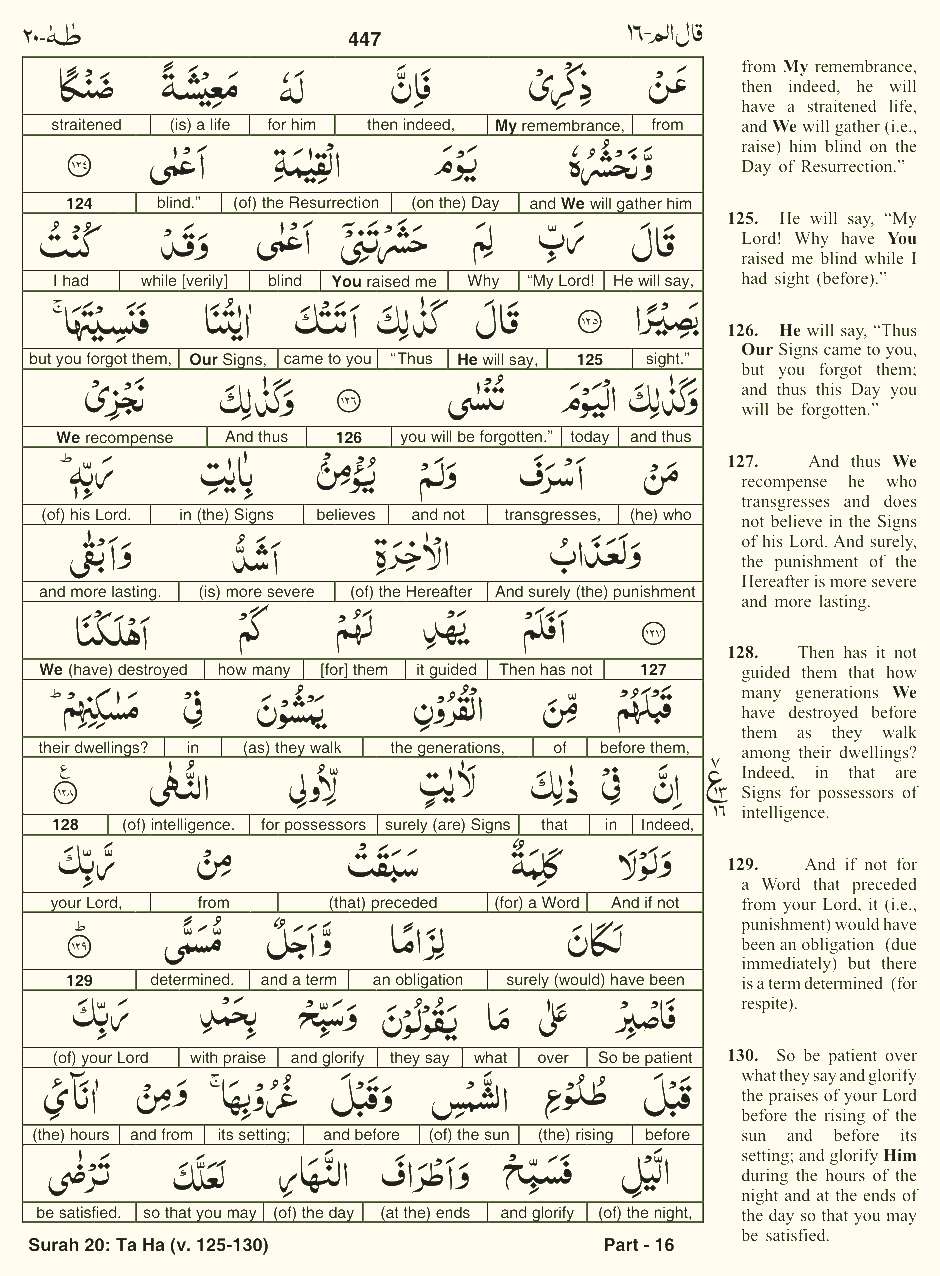 طٰهٰ-٢٠ 447 قال الم-١٦
عَنْ ذِكْرِیْ فَاِنَّ لَهٗ مَعِیْشَةً ضَنْكًا
from My remembrance, then indeed, for him (is) a life straitened
وَّنَحْشُرُهٗ یَوْمَ الْقِیٰمَةِ اَعْمٰی ١٢٤
and We will gather him (on the) Day (of) the Resurrection blind.” 124
قَالَ رَبِّ لِمَ حَشَرْتَنِیْۤ اَعْمٰی وَقَدْ كُنْتُ
He will say, “My Lord! Why You raised me blind while [verily] I had
بَصِیْرًا ١٢٥ قَالَ كَذٰلِكَ اَتَتْكَ اٰیٰتُنَا فَنَسِیْتَهَا ۚ
sight.” 125 He will say, “Thus came to you Our Signs, but you forgot them,
وَكَذٰلِكَ الْیَوْمَ تُنْسٰی ١٢٦ وَكَذٰلِكَ نَجْزِیْ
and thus today you will be forgotten.” 126 And thus We recompense
مَنْ اَسْرَفَ وَلَمْ یُؤْمِنْۢ بِاٰیٰتِ رَبِّهٖ ؕ
(he) who transgresses, and not believes in (the) Signs (of) his Lord.
وَلَعَذَابُ الْاٰخِرَةِ اَشَدُّ وَاَبْقٰی
And surely (the) punishment (of) the Hereafter (is) more severe and more lasting.
١٢٧ اَفَلَمْ یَهْدِ لَهُمْ كَمْ اَهْلَكْنَا
127 Then has not it guided [for] them how many We (have) destroyed
قَبْلَهُمْ مِّنَ الْقُرُوْنِ یَمْشُوْنَ فِیْ مَسٰكِنِهِمْ ؕ
before them, of the generations, (as) they walk in their dwellings?
اِنَّ فِیْ ذٰلِكَ لَاٰیٰتٍ لِّاُولِی النُّهٰی ١٢٨ ع
Indeed, in that surely (are) Signs for possessors (of) intelligence. 128
٧
ع
١٣
١٦
وَلَوْلَا كَلِمَةٌ سَبَقَتْ مِنْ رَّبِّكَ
And if not (for) a Word (that) preceded from your Lord,
لَكَانَ لِزَامًا وَّاَجَلٌ مُّسَمًّی ١٢٩ ؕ
surely (would) have been an obligation and a term determined. 129
فَاصْبِرْ عَلٰی مَا یَقُوْلُوْنَ وَسَبِّحْ بِحَمْدِ رَبِّكَ
So be patient over what they say and glorify with praise (of) your Lord
قَبْلَ طُلُوْعِ الشَّمْسِ وَقَبْلَ غُرُوْبِهَا ۚ وَمِنْ اٰنَآئِ
before (the) rising (of) the sun and before its setting; and from (the) hours
الَّیْلِ فَسَبِّحْ وَاَطْرَافَ النَّهَارِ لَعَلَّكَ تَرْضٰی
(of) the night, and glorify (at the) ends (of) the day so that you may be satisfied.
from My remembrance,
then indeed, he will
have a straitened life,
and We will gather (i.e.,
raise) him blind on the
Day of Resurrection.”
125. He will say, “My
Lord! Why have You
raised me blind while I
had sight (before).”
126. He will say, “Thus
Our Signs came to you,
but you forgot them;
and thus this Day you
will be forgotten.”
127. And thus We
recompense he who
transgresses and does
not believe in the Signs
of his Lord. And surely,
the punishment of the
Hereafter is more severe
and more lasting.
128. Then has it not
guided them that how
many generations We
have destroyed before
them as they walk
among their dwellings?
Indeed, in that are
Signs for possessors of
intelligence.
129. And if not for
a Word that preceded
from your Lord, it (i.e.,
punishment) would have
been an obligation (due
immediately) but there
is a term determined (for
respite).
130. So be patient over
what they say and glorify
the praises of your Lord
before the rising of the
sun and before its
setting; and glorify Him
during the hours of the
night and at the ends of
the day so that you may
be satisfied.
Surah 20: Ta Ha (v. 125-130) Part - 16